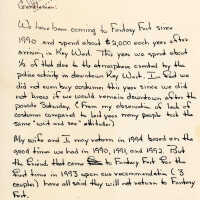 Gentlemen:
We have been coming to Fantasy Fest since
1990 and spend about $2,000 each year after
arriving in Key West. This year we spent about
½ of that due to the atmosphere created by the
police activity in downtown Key West. In fact we did
not even buy costumes this year since we did
not know if we would remain downtown after the
parade Saturday. (From my observation of lack of
costumes compared to last year many people took the
same "wait and see" attitude.)
My wife and I may return in 1994 based on the
good times we had in 1990, 1991, and 1992. But
the friends that came to Fantasy Fest for the
first time in 1993 upon our recommendation (3
couples) have all said they will not return to Fantasy
Fest.